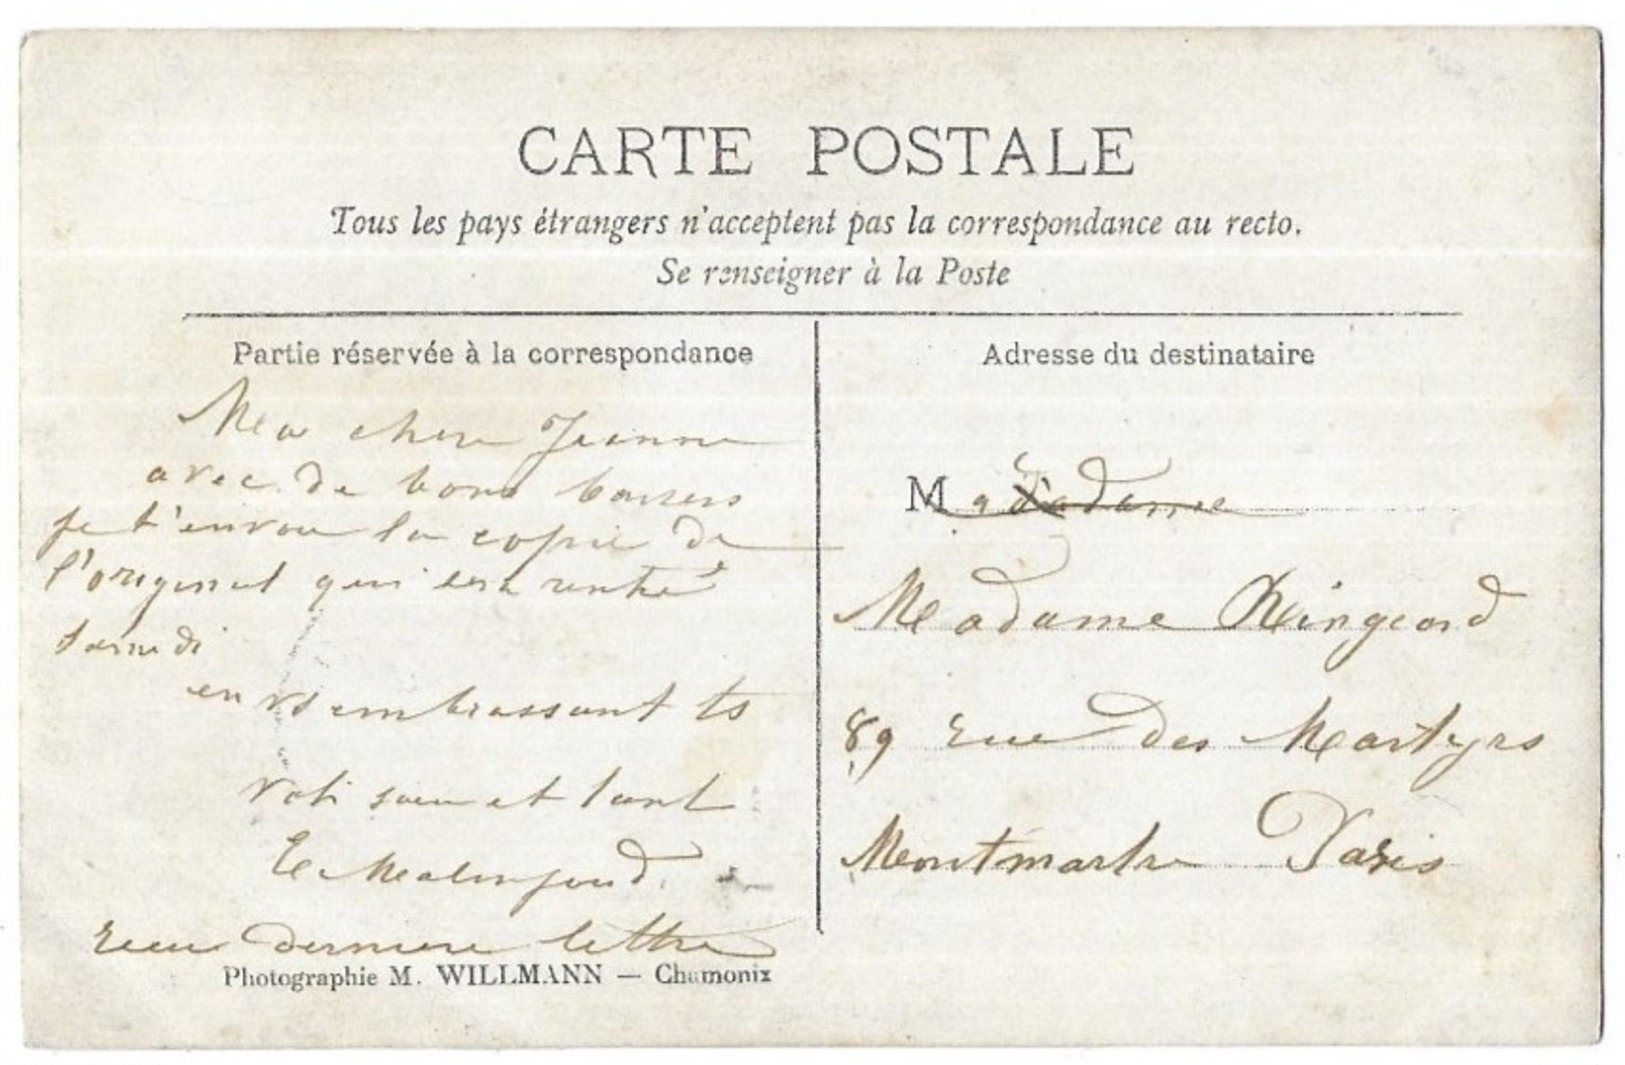 CARTE POSTALE
Tous les pays étrangers n'acceptent pas la correspondance au recto.
Se renseigner à la Poste
Partie réservée à la correspondance
Ma chere Jeanne
avec de bons baisers
je t'envoie la copie de
l'original qui sera rentré
Samedi
en vs embrassant ts
soeur et tant
recu derniere lettre
Photographie M. WILLMANN — Chamonix
Adresse du destinataire
M
Madame
89 rue des Martyrs
Montmartre Paris